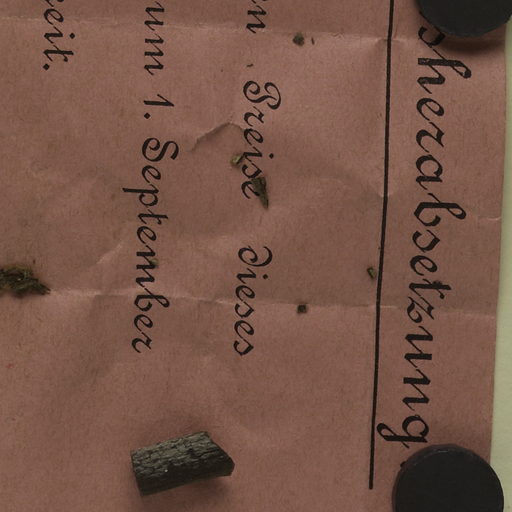 sherabsetzung
n Preise dieses
um 1. September
eit.